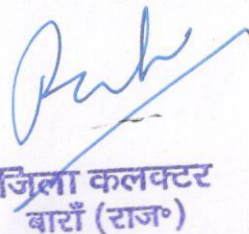 जिला कलक्टर
बाराँ (राज०)